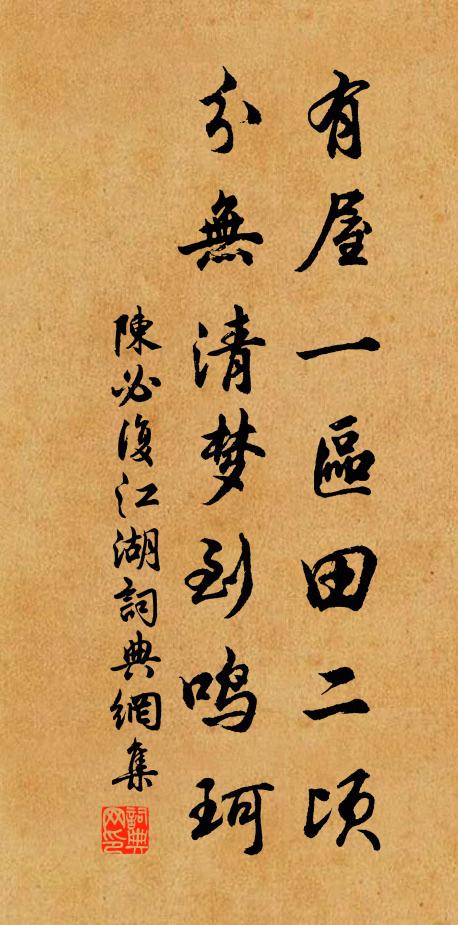 有屋一區田二頃
分無清梦到鸣珂
陳必復江湖詞典網集
詞典网印